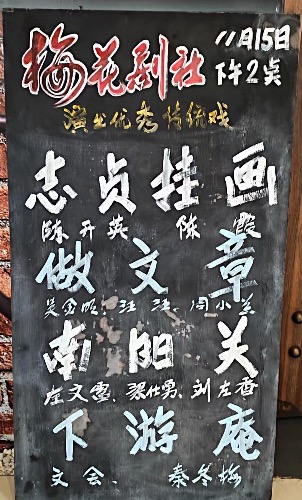 梅花剧社 11月15日
下午2点
演出优秀传统戏
志贞挂画
陈开英 陈霞
做文章
吴金 汪 闫小兰
南阳关
左文惠、梁仕勇、刘左香
下游庵
文会、 秦冬梅